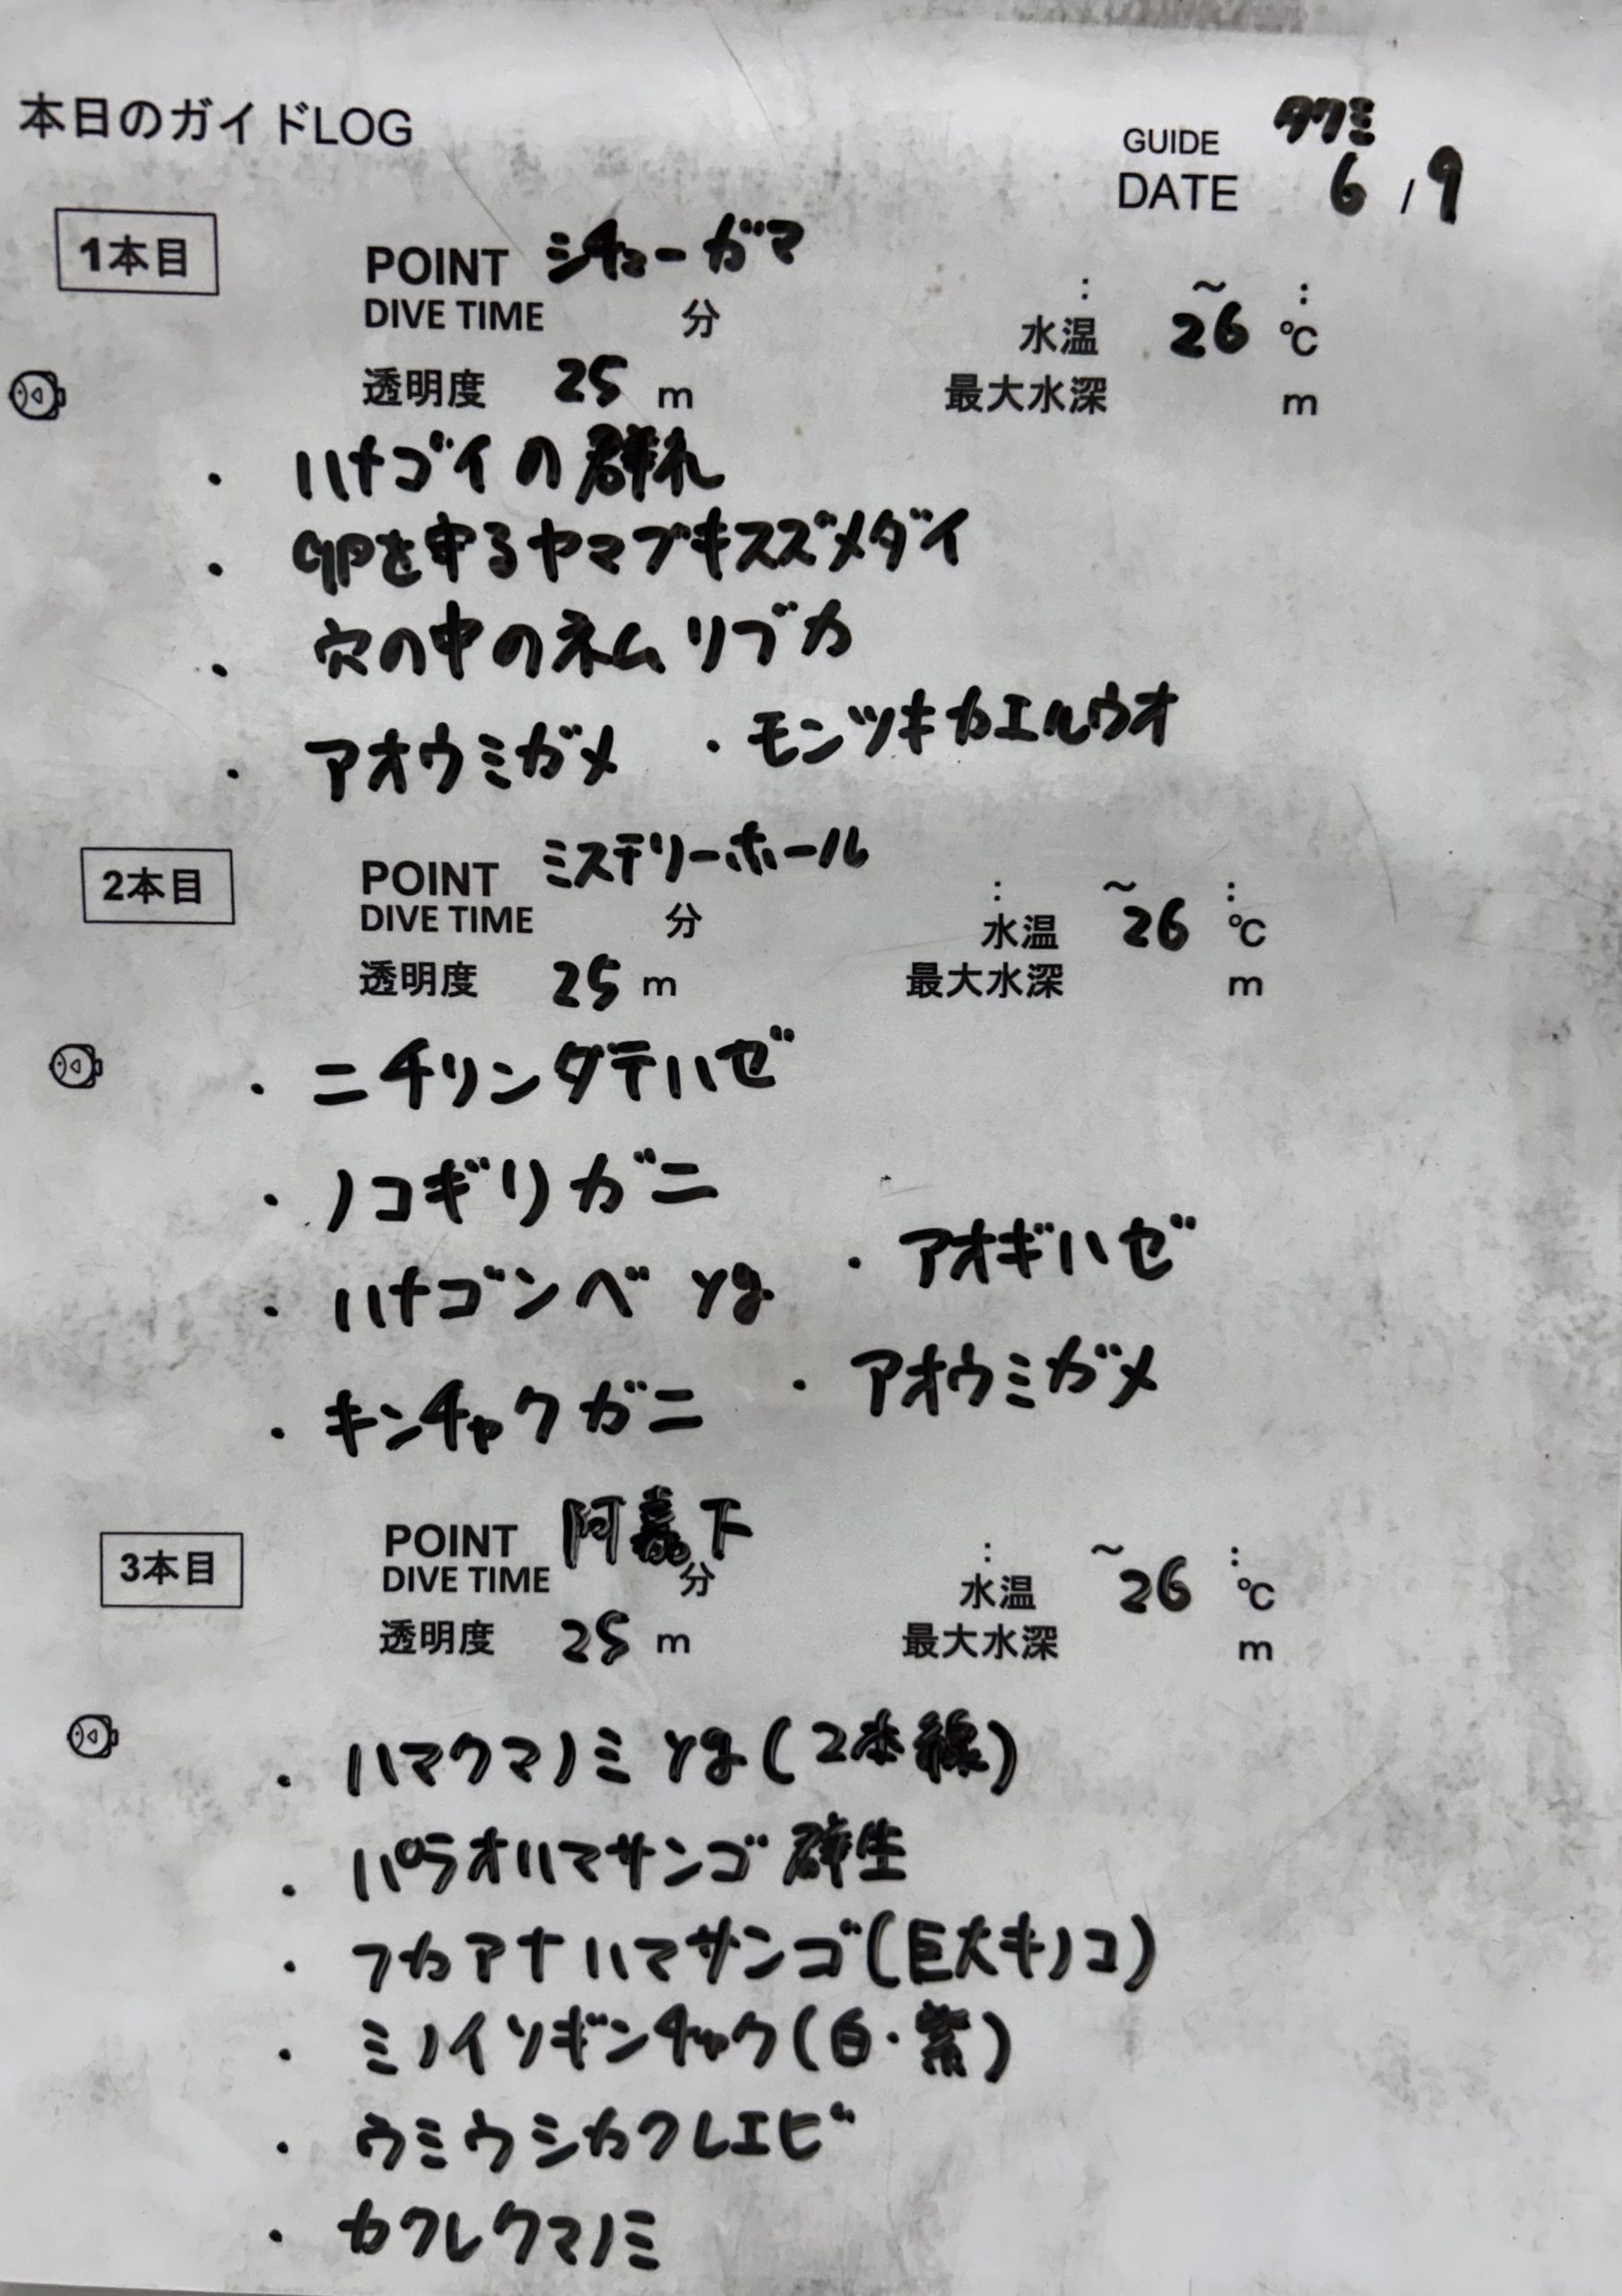 本日のガイドLOG
GUIDE タクミ
DATE 6/9
1本目
POINT シチューガマ
DIVE TIME 分 : ～ :
水温 26 ℃
透明度 25 m
最大水深 m
・ハナゴイの群れ
・卵を守るヤマブキスズメダイ
・穴の中のネムリブカ
・アオウミガメ ・モンツキカエルウオ
2本目
POINT ミステリーホール
DIVE TIME 分 : ～ :
水温 26 ℃
透明度 25 m
最大水深 m
・ニチリンダテハゼ
・ノコギリガニ
・ハナゴンベ yg ・アオギハゼ
・キンチャクガニ ・アオウミガメ
3本目
POINT 阿嘉下
DIVE TIME 分 : ～ :
水温 26 ℃
透明度 25 m
最大水深 m
・ハマクマノミ yg (2本線)
・パラオハマサンゴ群生
・フカアナハマサンゴ(巨大キノコ)
・ミノイソギンチャク(白・紫)
・ウミウシカクレエビ
・カクレクマノミ